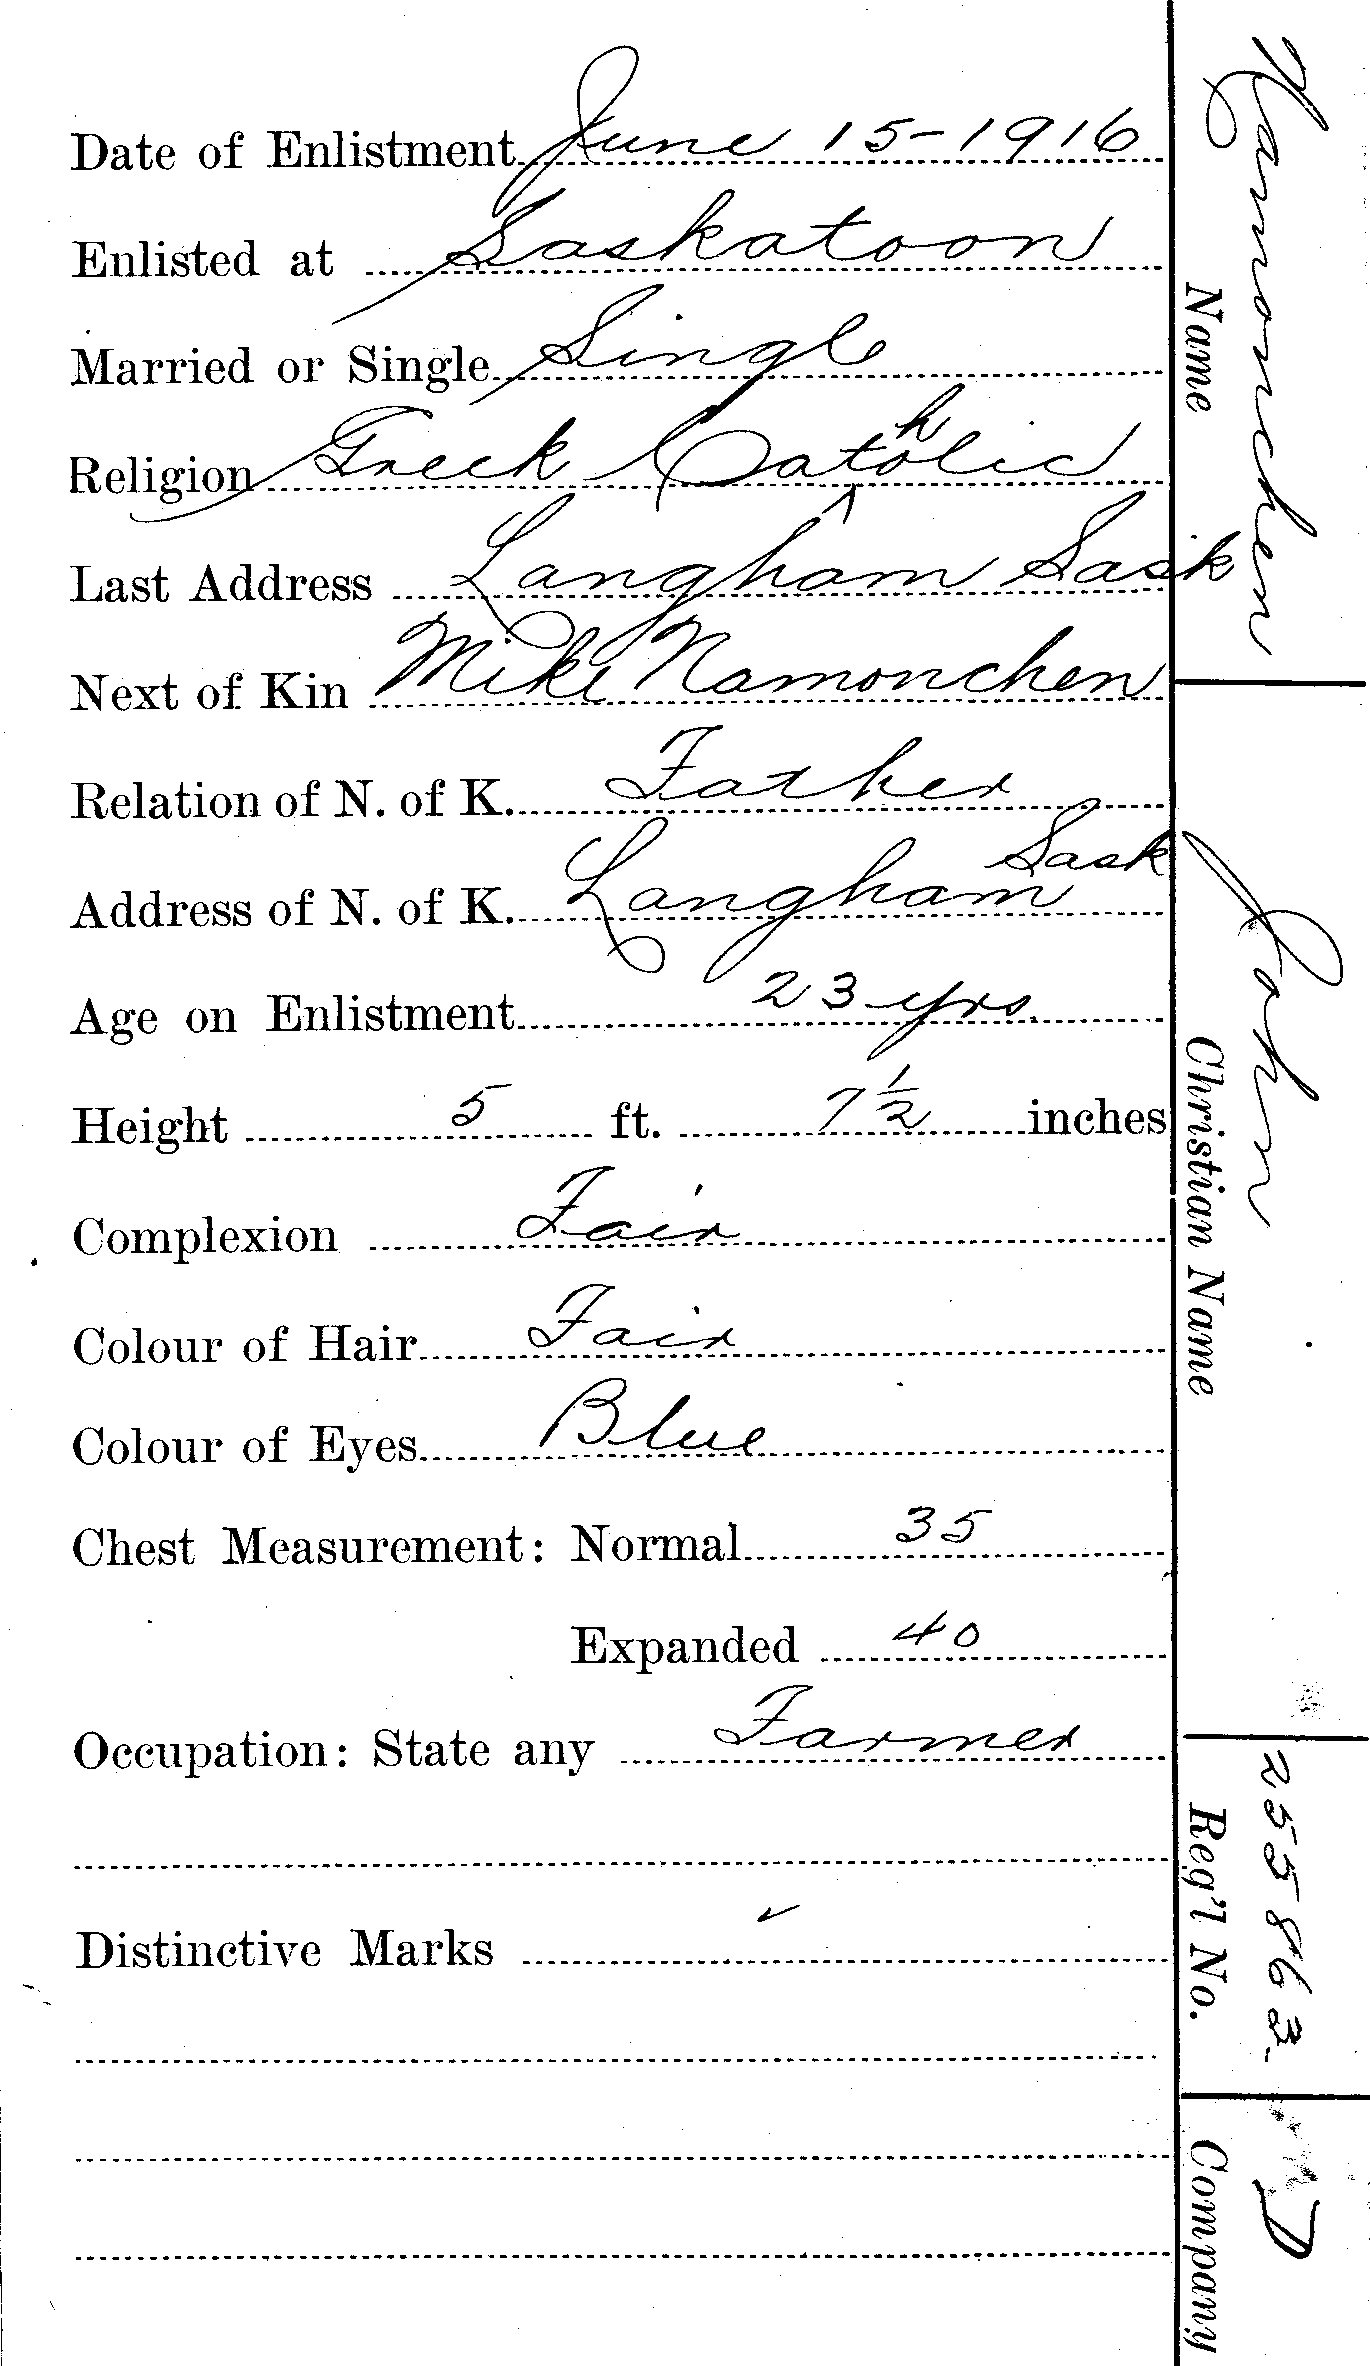 Date of Enlistment June 15-1916
Enlisted at Saskatoon
Married or Single Single
Religion Greek Catholic
Last Address Langham Sask
Next of Kin Mike Namonchen
Relation of N. of K. Father
Address of N. of K. Langham Sask
Age on Enlistment 23 yrs.
Height 5 ft. 7 1/2 inches
Complexion Fair
Colour of Hair Fair
Colour of Eyes Blue
Chest Measurement: Normal 35
Expanded 40
Occupation: State any Farmer
Distinctive Marks ✓
Namonchen
Name
John
Christian Name
255863.
Reg'l No.
D
Company